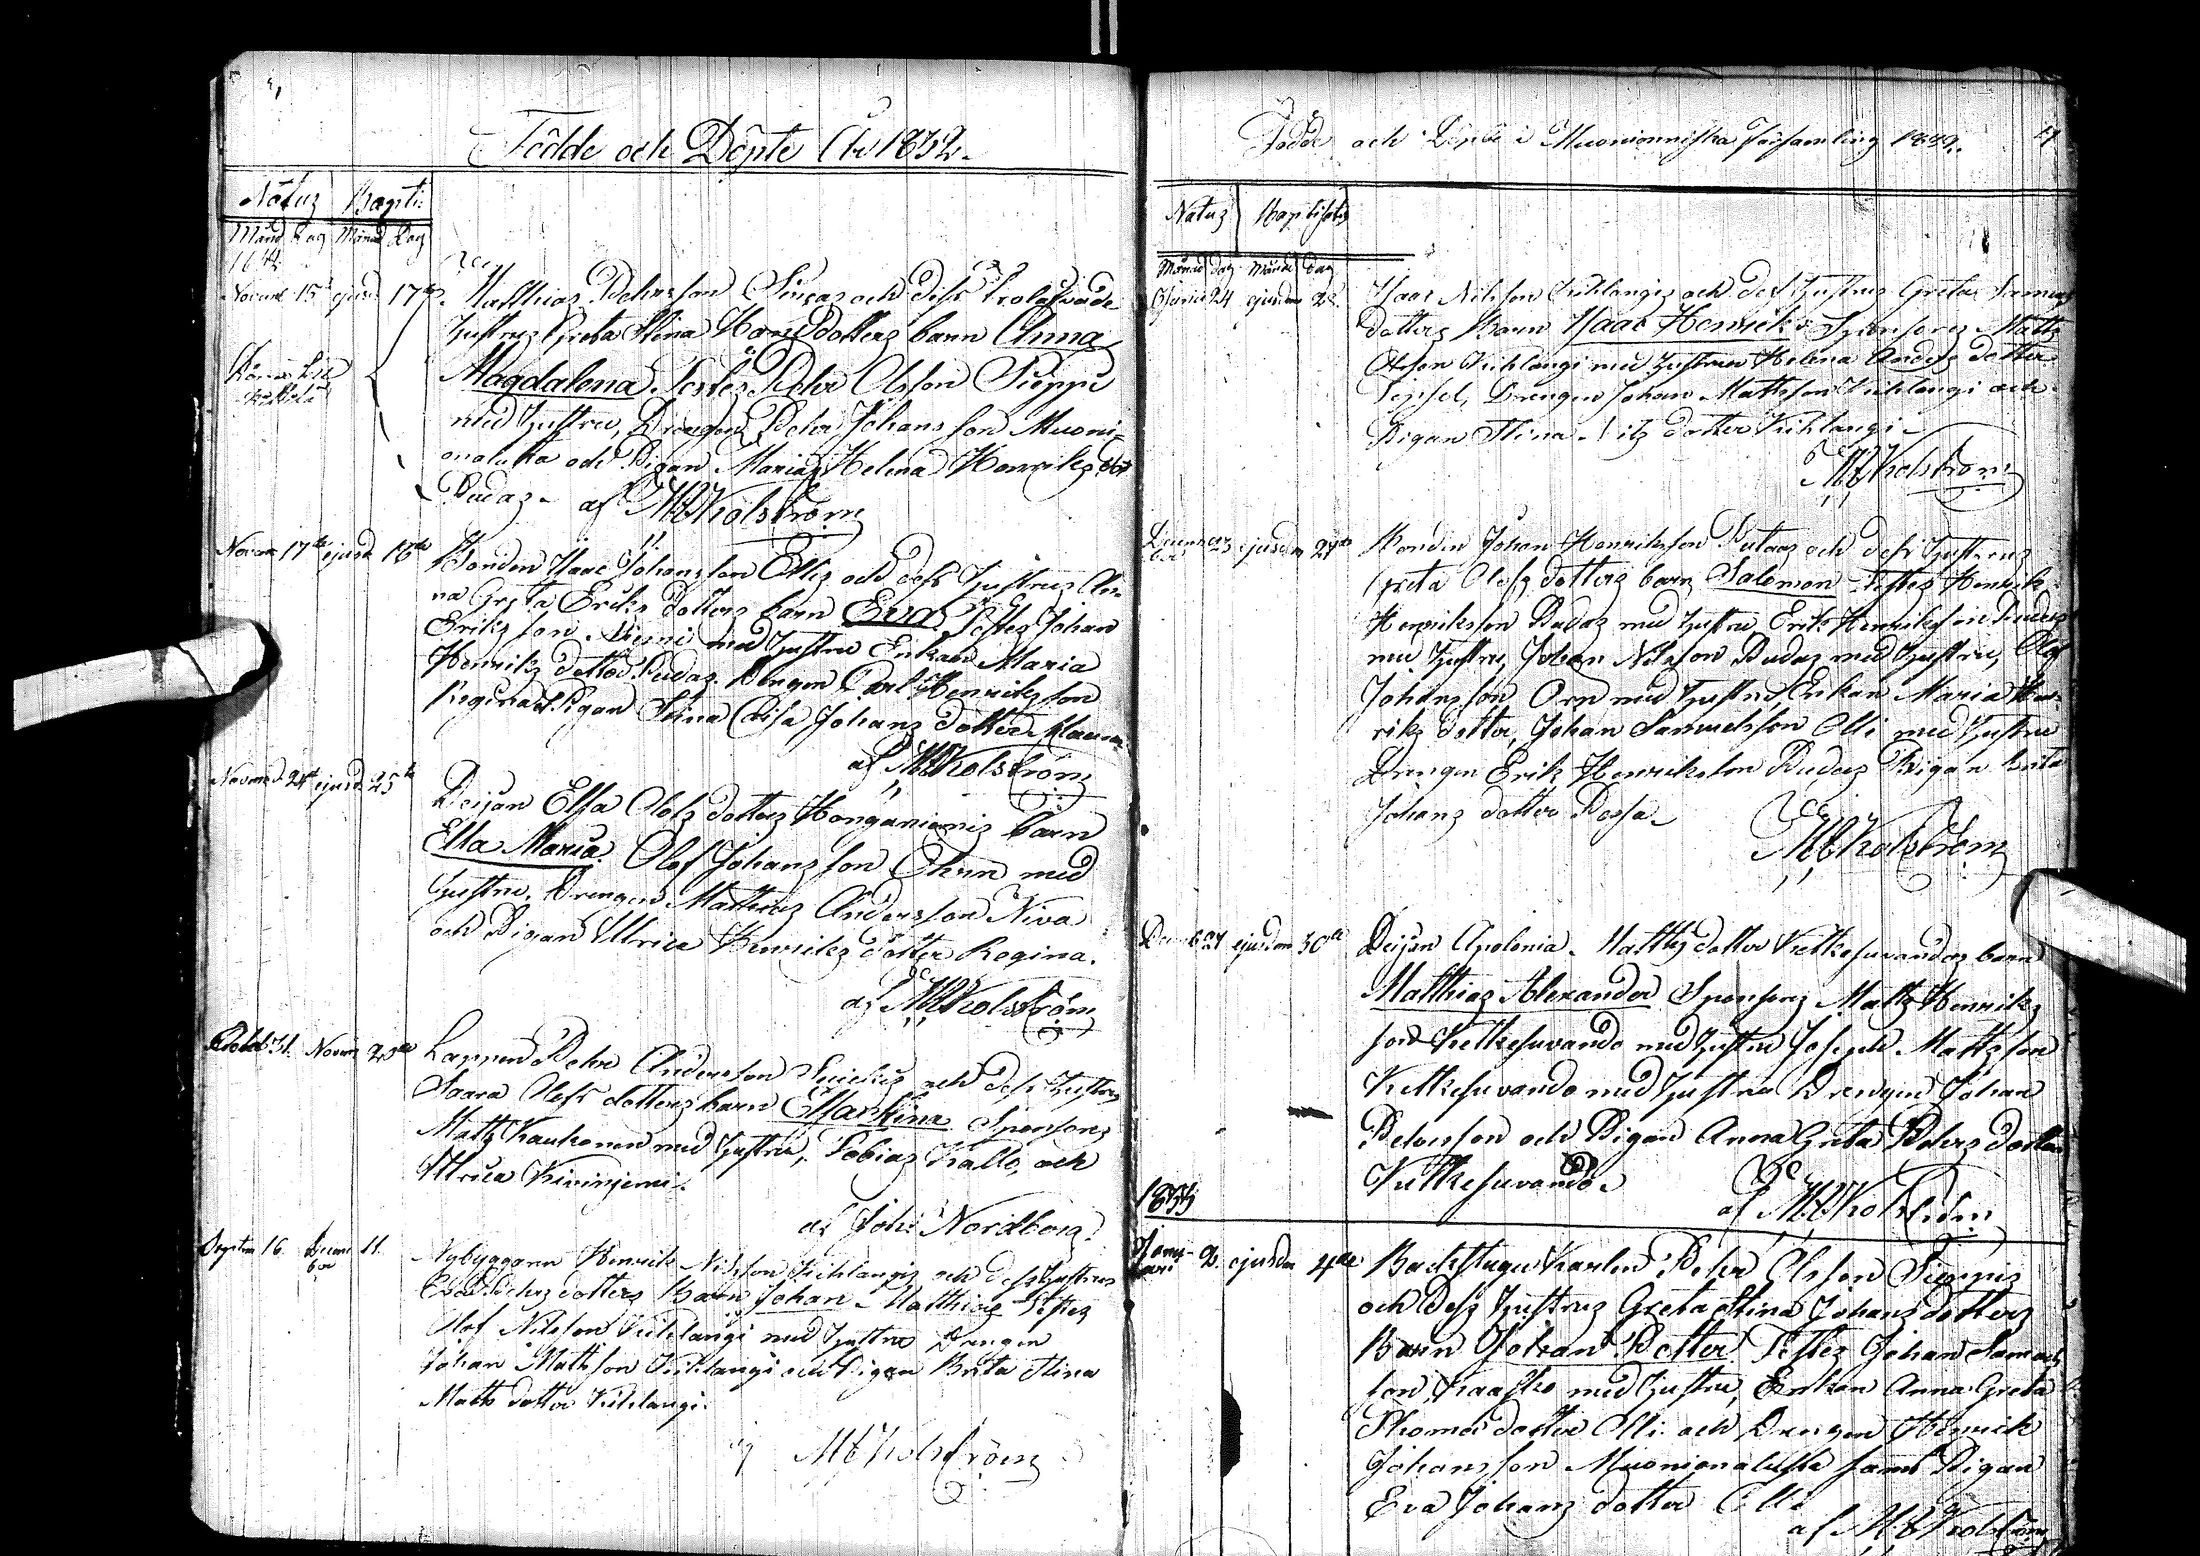 Födde och Döpte År 1832.
Natus Bapti:
Månd Dag Månad Dag
Novemb 15 ejusd 17de Matthias Pehrsson och dess trolofvade
hustrus Greta Stina Hans dotters barn Anna
Magdalena. Testes Pehr Olsson Sieppi
med hustru, Drengen Pehr Johans son Muoni-
onalusta och Pigan Maria Helena Henriks dot
Rudas. af MKolström
Novem 17de ejusd 18de Bonden Isaac Johansson Ollis och dess hustrus An-
na Greta Eriks dotters barn Eva Testes Johan
Eriksson Niemi med hustru Enkan Maria
Henriks dotter Rudas. Drengen Carl Henriksson
Regina Pigan Stina Caisa Johans dotter
af MKolström
Novemb 24de ejusd 25te Deijan Elsa Olofs dotters Hanganiemis barn
Elsa Maria. Olof Johansson Öhrn med
hustru. Drengen Matthias Andersson Niva
och Pigan Ulrica Henriks dotter Regina.
af MKolström
Octob 31. Novem 25de Lappen Pehr Andersson och dess hustrus
Saara Olofs dotters barn Sponsores
Matts Kaukonen med hustru, Tobias Kallo, och
Ulrica Kivinjemi.
af Joh: Nordberg
16. Decem 11.
ber
Nybyggaren Henrik Nilsson Kihlangis och dess hustrus
Pehrs dotters Barn Johan Matthias Testes
Olof Nilsson Kihlangi med hustru Drengen
Johan Mattsson Kihlangi och Pigan Brita Stina
Matts dotter Kihlangi.
af MKolström
Födde och Döpte i Muonionniska Församling 1832.
Natus Baptisatus
Månad dag Månad dag
24 ejusdem Isaac Nilsson Kihlangis och dess hustrus Greta Samuels
dotters Barn Isaac Henrick. Sponsores Matts
Olsson Kihlangi med hustru Helena Anders dotter
Drengen Johan Mattsson Kihlangi och
Pigan Stina Nils dotter Kihlangi
MKolström
Decem 23 ejusdem 27de Bonden Johan Henriksson Rutas och dess hustrus
ber
Greta Olofs dotters barn Salomon Testes Henrik
Henriksson Rudas med hustru Erik Henriksson Rudas
med hustru, Johan Nilsson Rudas med hustru, Olof
Johansson Örn med hustru, Enkan Maria Hen-
riks dotter, Johan Samuelsson Olli med hustru
Drengen Erik Henriksson Rudas Pigan Brita
Johans dotter
MKolström
Decemb 27 ejusdem 30de Deijan Apolonia Matths dotter Kettkesuvandos barn
Matthias Alexander Sponsores Matts Henriks
son Kettkesuvando med hustru Joseph Mattsson
Kettkesuvando med hustru Drengen Johan
Pehrsson och Pigan Anna Greta Pehrs dotter
Kettkesuvando.
af MKolström
1833
Janu- 2. ejusdem 4de Backstugu Karlen Pehr Olsson Sieppis
ari
och dess hustrus Greta Stina Johans dotters
Barn Johan Petter. Testes Johan Samuels
son Kaasko med hustru, Enkan Anna Greta
Thomas dotter Olli och Drengen Henrich
Johansson Muonionalusta samt Pigan
Eva Johans dotter Olli
af MKolström